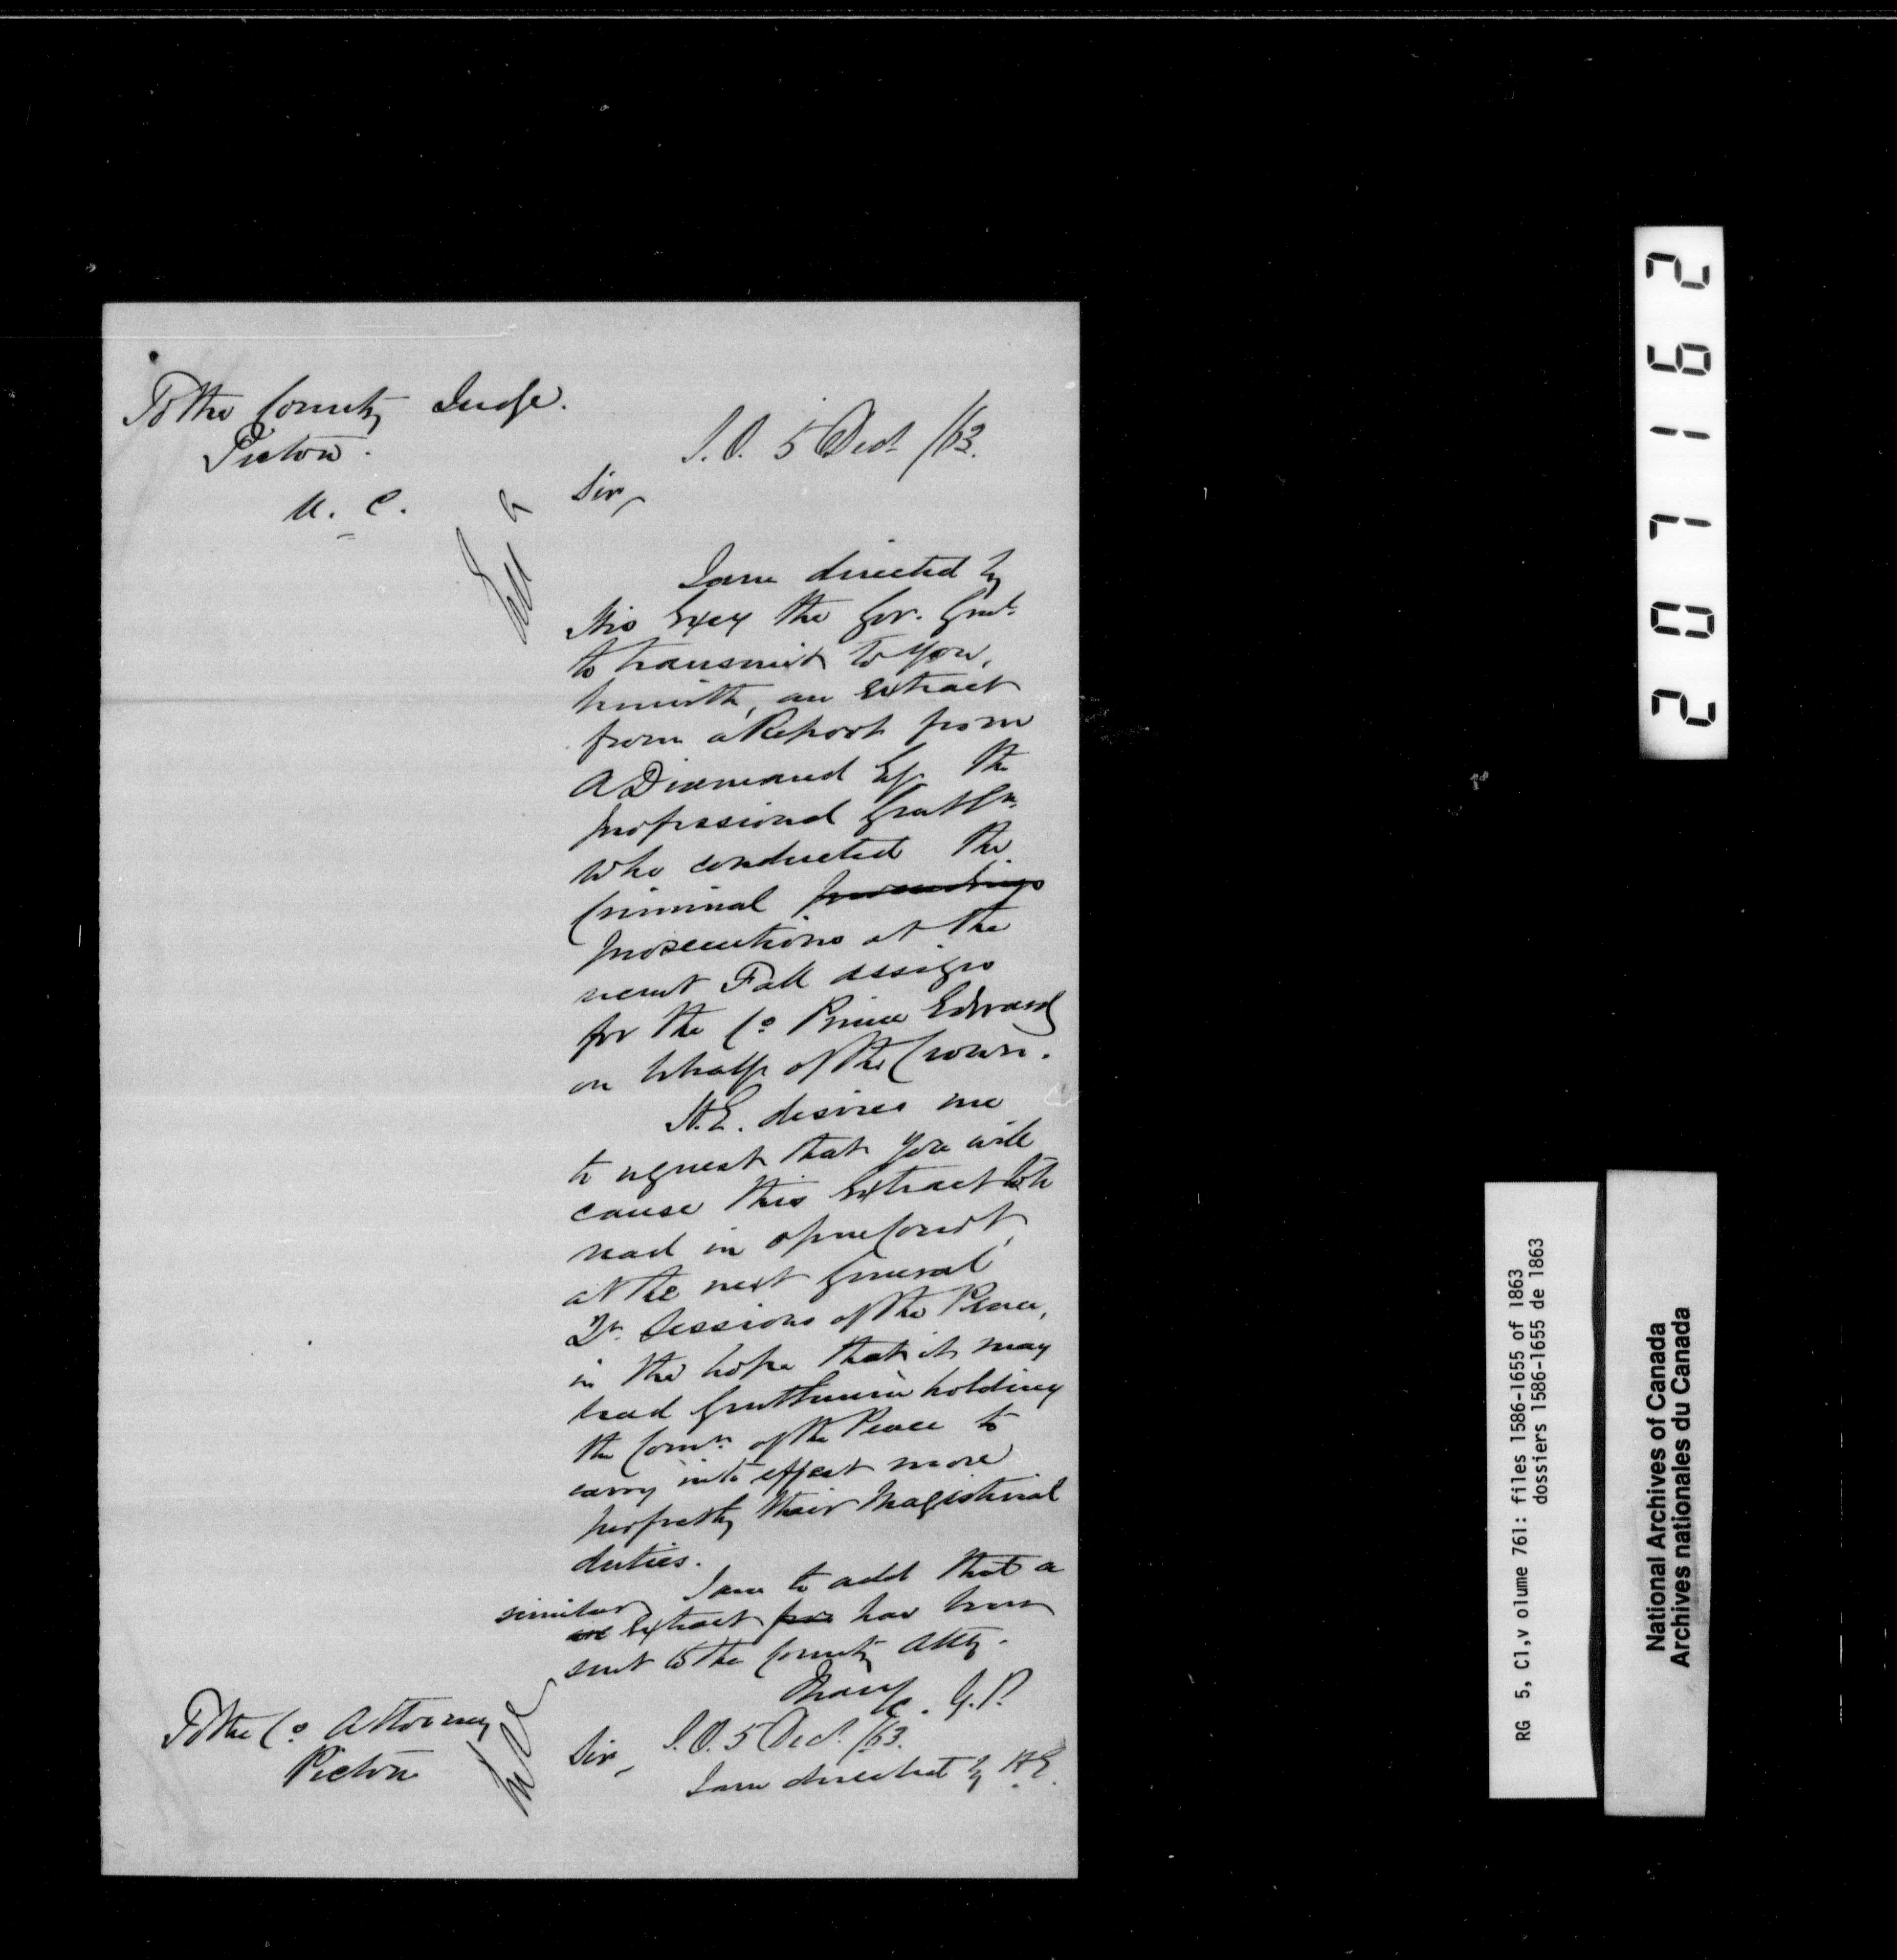 To the County Judge.
Picton.
U. C.
S.O. 5 Decr /63.
Sir,
I am directed by
His Excy the Gov. Genl.
to transmit to you,
herewith, an Extract
from a Report from
A Diamand Esq. the
professional Gentln.
who conducted the
Criminal proceedings
prosecutions at the
recent Fall assizes
for the Co. Prince Edward
on behalf of the Crown.
H.E. desires me
to request that you will
cause this Extract to be
read in open Court,
at the next General
Qr. Sessions of the Peace,
in the hope that it may
lead Gentlemen holding
the Comn. of the Peace to
carry into effect more
perfectly their Magisterial
duties.
I am to add that a
similar
Extract has been
sent to the County Atty.
To the Co. Attorney
Picton
Sir,
S.O. 5 Decr. /63.
I am directed by H.E.
207162
RG 5, C1,v olume 761: files 1586-1655 of 1863
dossiers 1586-1655 de 1863
National Archives of Canada
Archives nationales du Canada